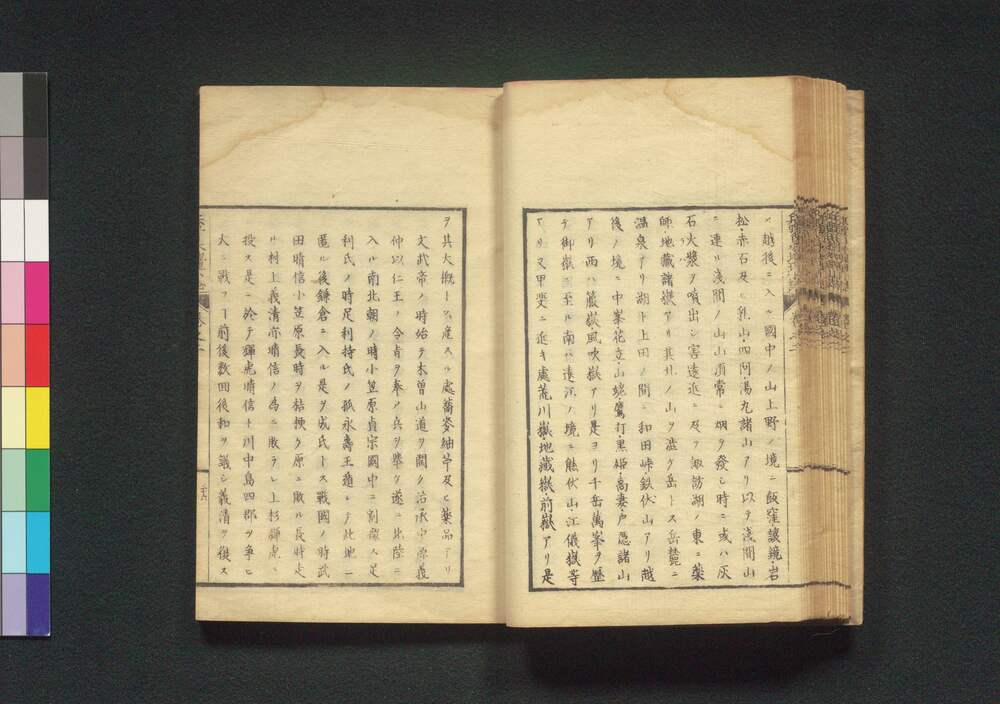 越後ニ入ル國中ノ山上野ノ境ニ飯窪鏡岩
松赤石及ヒ乳山四阿湯丸諸山アリ以テ淺間山
ニ連ル淺間ノ山山頂常ニ烟ヲ發シ時ニ或ハ灰
石火漿ヲ噴出シ害遠近ニ及フ諏訪湖ノ東ニ藥
師地藏諸嶽アリ其北ノ山ヲ澁グ岳トス岳麓ニ
溫泉アリ湖ト上田ノ間ニ和田峠鉄伏山アリ越
後ノ境ニ中峯花立山蛯鷹打黒姫高妻戸隱諸山
アリ西ハ巖嶽風吹嶽アリ是ヨリ千岳萬峯ヲ歷
テ御嶽ニ至ル南ハ遠江ノ境ニ熊伏山江儀嶽等
アリ又甲斐ニ近キ處荒川嶽地藏嶽前嶽アリ是
ヲ其大概トス產スル處蕎麥紬苧及ヒ藥品アリ
文武帝ノ時始テ木曾山道ヲ開ク治承中源義
仲以仁王ノ令旨ヲ奉シ兵ヲ擧ケ遂ニ北陸ニ
入ル南北朝ノ時小笠原貞宗國中ニ割據ス足
利氏ノ時足利持氏ノ孤永壽王遁レテ此地ニ
匿ル後鎌倉ニ入ル是ヲ成氏トス戰國ノ時武
田晴信小笠原長時ヲ桔梗ケ原ニ敗ル長時走
ル村上義清亦晴信ノ爲ニ敗ラレ上杉輝虎ニ
投ス是ニ於テ輝虎晴信ト川中島四郡ヲ爭ヒ
大ニ戰フ丁前後數回後和ヲ議シ義清ヲ復ス